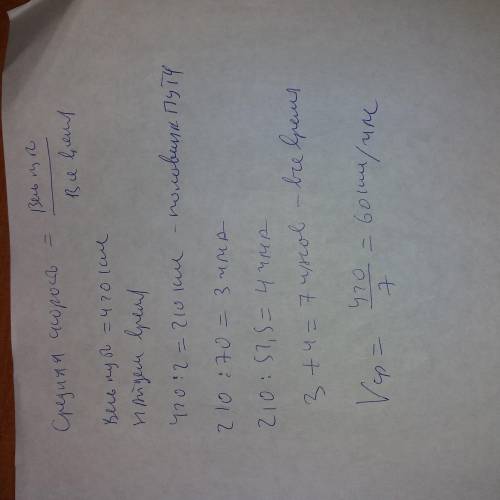 Средняя скорость = Весь путь / Все время
Весь путь = 420 км
Найдем время
420 : 2 = 210 км - половина пути
210 : 70 = 3 часа
210 : 52,5 = 4 часа
3 + 4 = 7 часов - все время
Vср = 420 / 7 = 60 км/час